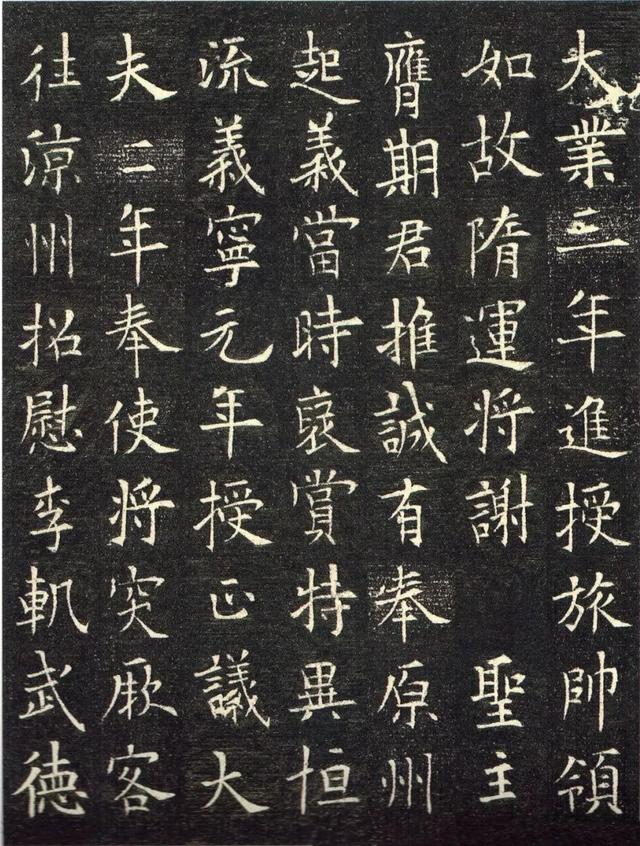 大業三年進授旅帥領
如故隋運將謝 聖主
膺期君推誠有奉原州
起義當時裦賞特異恒
流義寧元年授正議大
夫二年奉使將突厥客
往涼州招慰李軌武德